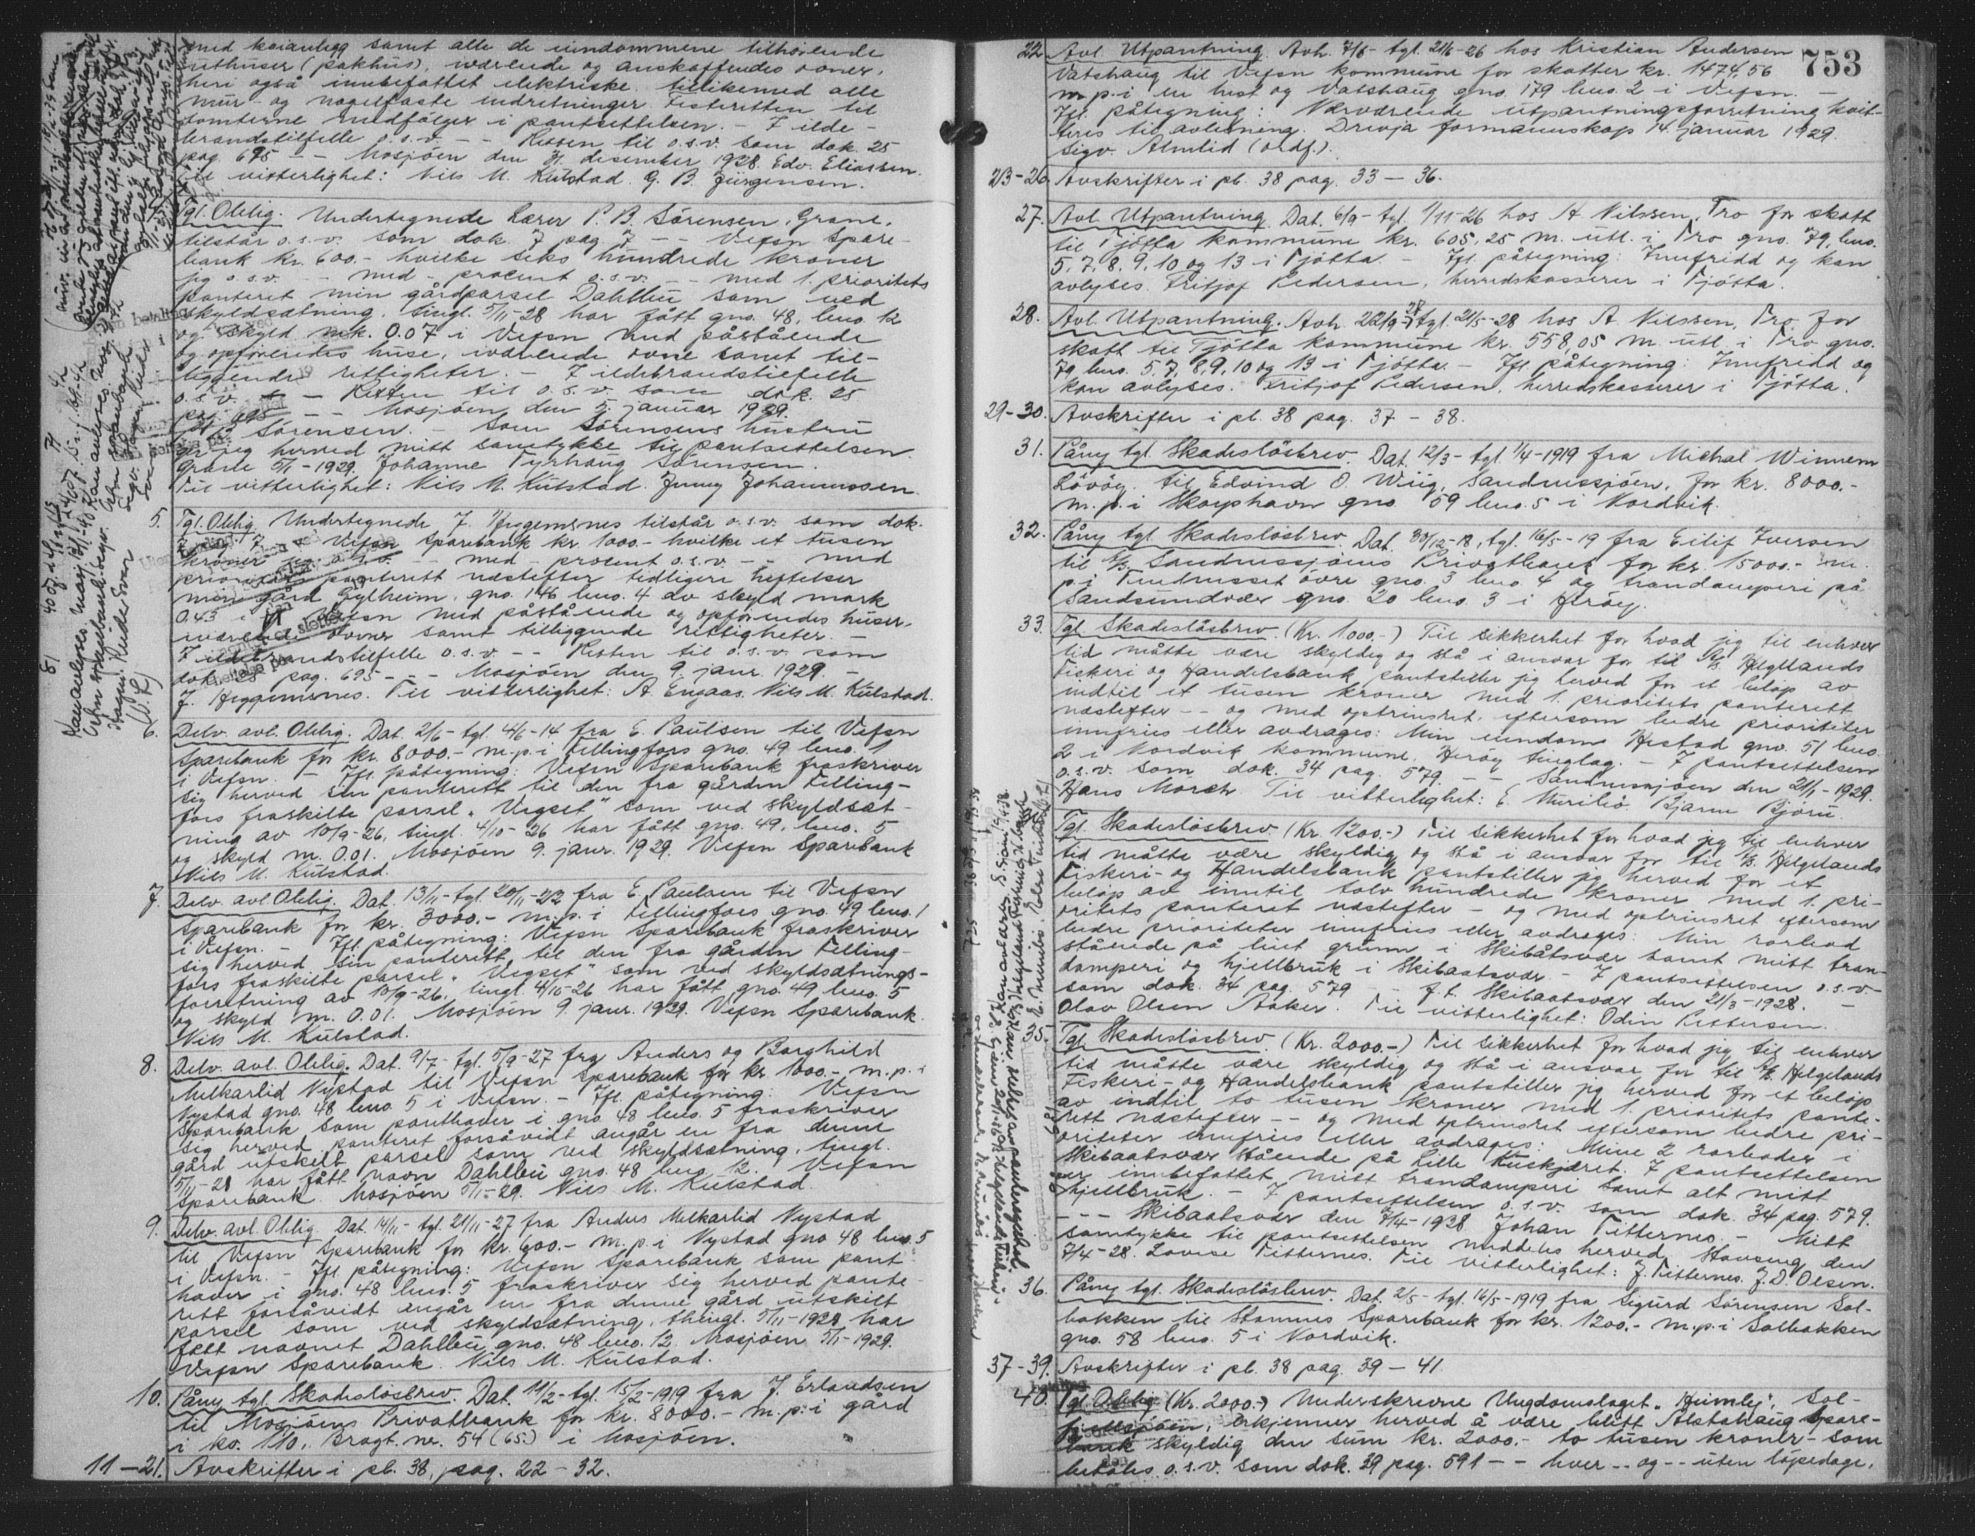 med kaianlegg samt alle de eiendommene tilhørende
uthuser (pakhus), værende og anskaffendes ovner,
heri også innbefattet elektriske tillikemed alle
mur- og nagelfaste indretninger. Festeretten til
tomterne medfølger i pantsettelsen. - I ilde-
brandstilfelle o.s.v. - - Retten til o.s.v. som dok. 25
pag 695 - - Mosjøen den 31. desember 1928. Edv. Eliassen.
Til vitterlighet: Nils M. Kulstad. G. B. Jürgensen.
Tgl. Oblig. Undertegnede Lærer P. B. Sørensen, Grane,
tilstår o.s.v. som dok. 7 pag 7 - - Vefsn Spare-
bank kr. 600.- hvilke seks hundrede kroner
jeg o.s.v. - - med - procent o.s.v. - - med 1. prioritets
panteret min gårdparsel Dahlbu som ved
skyldsætning, tingl. 5/11-28 har fått gno. 48, bno. 12
og skyld mk. 0.07 i Vefsn med påstående
og opførendes huse, værende ovne samt til-
liggende rettigheter. - I ildebrandstilfelle
o.s.v. - - Retten til o.s.v. som dok. 25
pag. 695 - - Mosjøen den 5. januar 1929.
P. B. Sørensen. - Som Sørensens hustru
gir jeg herved mitt samtykke til pantsettelsen.
Grane 5/1-1929. Johanne Fyrhaug Sørensen.
Til vitterlighet: Nils M. Kulstad. Jenny Johannessen.
5. Tgl. Oblig. Undertegnede J. Heggemsnes tilstår o.s.v. som dok.
7 pag 7 - - Vefsn Sparebank kr. 1000.- hvilke et tusen
kroner jeg o.s.v. - - med - procent o.s.v. - - med
prioritets panterett næstefter tidligere heftelser
min gård Gylheim, gno. 146 bno. 4 av skyld mark
0.43 i Vefsn med påstående og opførendes huser,
værende ovner samt tilliggende rettigheter. -
I ildebrandstilfelle o.s.v. - - Retten til o.s.v. som
dok. pag. 695 - - Mosjøen den 9. janr. 1929. -
J. Heggemsnes. Til vitterlighet: A. Engaas. Nils M. Kulstad.
6. Delv. avl. Oblig. Dat. 2/6- tgl. 4/6-14 fra E. Paulsen til Vefsn
Sparebank for kr. 8000.- m.p. i Fellingfors gno. 49 bno. 1
i Vefsn. - Ifl. påtegning: Vefsn Sparebank fraskriver
sig herved sin panterett til den fra gården Felling-
fors fraskilte parsel „Vegset" som ved skyldsæt-
ning av 10/9-26, tingl. 4/10-26 har fått gno. 49, bno. 5
og skyld m. 0.01. Mosjøen 9. janr. 1929. Vefsn Sparebank
Nils M. Kulstad.
7. Delv. avl. Oblig. Dat. 13/11- tgl. 20/11-22 fra E. Paulsen til Vefsn
Sparebank for kr. 3000.- m.p. i Fellingfors gno. 49 bno. 1
i Vefsn. - Ifl. påtegning: Vefsn Sparebank fraskriver
sig herved sin panterett til den fra gården Felling-
fors fraskilte parsel „Vegset" som ved skyldsætnings-
forretning av 10/9-26, tingl. 4/10-26 har fått gno. 49 bno. 5
og skyld m. 0.01. Mosjøen 9. janr. 1929. Vefsn Sparebank.
Nils M. Kulstad.
8. Delv. avl. Oblig. Dat. 9/7- tgl. 5/9-27 fra Anders og Borghild
Melkarlid Nystad til Vefsn Sparebank for kr. 1000.- m.p. i
Nystad gno. 48 bno. 5 i Vefsn. - Ifl. påtegning: Vefsn
Sparebank som panthaver i gno. 48 bno. 5 fraskriver
sig herved panteret forsåvidt angår en fra denne
gård utskilt parsel som ved skyldsætning, tingl.
5/11-28 har fått navn Dahlbu gno. 48 bno. 12. Vefsn
Sparebank. Mosjøen 5/1-29. Nils M. Kulstad.
9. Delv. avl. Oblig. Dat. 14/11- tgl. 21/11-27 fra Anders Melkarlid Nystad
til Vefsn Sparebank for kr. 600.- m.p. i Nystad gno 48 bno. 5
i Vefsn. - Ifl. påtegning: Vefsn Sparebank som pant-
haver i gno. 48 bno. 5 fraskriver sig herved pante-
rett forsåvidt angår en fra denne gård utskilt
parsel som ved skyldsætning, thingl. 5/11-1928 har
fått navnet Dahlbu gno. 48 bno. 12. Mosjøen 5/1-1929.
Vefsn Sparebank. Nils M. Kulstad.
10. Påny tgl. Skadesløsbrev. Dat. 11/2- tgl. 15/2-1919 fra J. Erlandsen
til Mosjøens Privatbank for kr. 8000.- m.p. i gård
i kv. 110, Bragt. nr. 54 (65.) i Mosjøen.
11-21. Avskrifter i pb. 38, pag. 22-32.
753
22. Avl. Utpantning. Avh. 7/6- tgl. 21/6-26 hos Kristian Andersen
Vatshaug til Vefsn kommune for skatter kr. 1474.56
m.p. i en hest og Vatshaug gno. 179 bno. 2 i Vefsn. -
Ifl. påtegning: Nærværende utpantningsforretning kvit-
teres til avlesning. Drevja formannskap 14. januar 1929.
Sigv. Almlid (ordf.).
23-26. Avskrifter i pb. 38 pag. 33-36.
27. Avl. Utpantning. Dat. 6/9- tgl. 1/11-26 hos A. Nilssen, Tro for skatt
til Tjøtta kommune kr. 605,25 m. utl. i Tro gno. 79, bno.
5. 7. 8. 9. 10 og 13 i Tjøtta. - Ifl. påtegning: Innfridd og kan
avlyses. Fritjof Pedersen, herredskasserer i Tjøtta.
28. Avl. Utpantning. Avh. 22/9-27 tgl. 21/5-28 hos A. Nilssen, Tro for
skatt til Tjøtta kommune kr. 558,05 m. utl. i Tro gno.
79 bno. 5. 7. 8. 9. 10 og 13 i Tjøtta. - Ifl. påtegning: Innfridd og
kan avlyses. Fritjof Pedersen, herredskasserer i Tjøtta.
29-30. Avskrifter i pb. 38 pag. 37-38.
31. Påny tgl. Skadesløsbrev. Dat. 12/3- tgl. 1/4-1919 fra Michal Winnem
Løvøy. til Edvind O. Wiig, Sandnessjøen, for kr. 8000.-
m.p. i Skeyshavn gno. 59 bno. 5 i Nordvik.
32. Påny tgl. Skadesløsbrev. Dat. 30/12-18, tgl. 16/5-19 fra Eilif Iversen
til A/S Sandnessjøens Privatbank for kr. 15000.- m.
p. i Tindrusset øvre gno. 3 bno. 4 og trandamperi på
Sandsundvær gno. 20 bno. 3 i Herøy.
33. Tgl. Skadesløsbrev. (Kr. 1000.-) Til sikkerhet for hvad jeg til enhver
tid måtte være skyldig og stå i ansvar for til A/S Helgelands
Fiskeri og Handelsbank pantstiller jeg herved for et beløp av
indtil et tusen kroner med 1. prioritets panterett
næstefter - - og med optrinsret, eftersom bedre prioriteter
innfries eller avdrages: Min eiendom Hestad gno. 51 bno.
2 i Nordvik kommune, Herøy tinglag. - I pantsettelsen
o.s.v. som dok. 34 pag. 579 - - Sandnessjøen den 21/1-1929.
Hans Morch. Til vitterlighet: E. Meriliö. Bjarne Bjøru.
Tgl. Skadesløsbrev (Kr. 1200.-) Til sikkerhet for hvad jeg til enhver
tid måtte være skyldig og stå i ansvar for til A/S Helgelands
Fiskeri- og Handelsbank pantstiller jeg herved for et
beløp av inntil tolv hundrede kroner med 1. pri-
oritets panteret næstefter - og med optrinsret eftersom
bedre prioriteter innfries eller avdrages: Min rorbod
stående på leiet grunn i Skibåtsvær samt mitt tran-
damperi og hjellbruk i Skibaatsvær. - I pantsettelsen o.s.v.
som dok. 34 pag. 579 - - f.t. Skibaatsvær den 21/3-1928. -
Olav Olsen Aaker. Til vitterlighet: Odin Pettersen.
35. Tgl. Skadesløsbrev (Kr. 2000.-) Til sikkerhet for hvad jeg til enhver
tid måtte være skyldig og stå i ansvar for til A/S. Helgelands
Fiskeri- og Handelsbank pantstiller jeg herved for et beløp
av indtil to tusen kroner med 1. prioritets pante-
rett næstefter - - og med optrinsret eftersom bedre pri-
oriteter innfries eller avdrages: Mine 2 rorboder i
Skibaatsvær stående på Lille Kuskjæret. I pantsettelsen
er innbefattet mitt trandamperi samt alt mitt
hjellbruk. - I pantsettelsen o.s.v. som dok. 34 pag. 579.
- - - Skibaatsvær den 7/4-1928. Johan Titternes. - Mitt
samtykke til pantsettelsen meddeles herved. Stavseng den
7/4-28. Lovise Titternes. Til vitterlighet: J. Titternes. J. D. Olsen.
36. Påny tgl. Skadesløsbrev. Dat. 2/5- tgl. 16/5-1919 fra Sigurd Sørensen Sol-
bakken til Stamnes Sparebank for kr. 1200.- m.p. i Solbakken
gno. 58 bno. 5 i Nordvik.
37-39. Avskrifter i pb. 38 pag. 39-41.
40. Tgl. Oblig. (Kr. 2000.-) Underskrevne Ungdomslaget „Heimly", Sol-
fjellsjøen, erkjenner herved å være blitt Alstahaug Spare-
bank skyldig den sum kr. 2000.- to tusen kroner - som
betales o.s.v. som dok. 39 pag. 591 - - hver - - og - - uten løpedage,